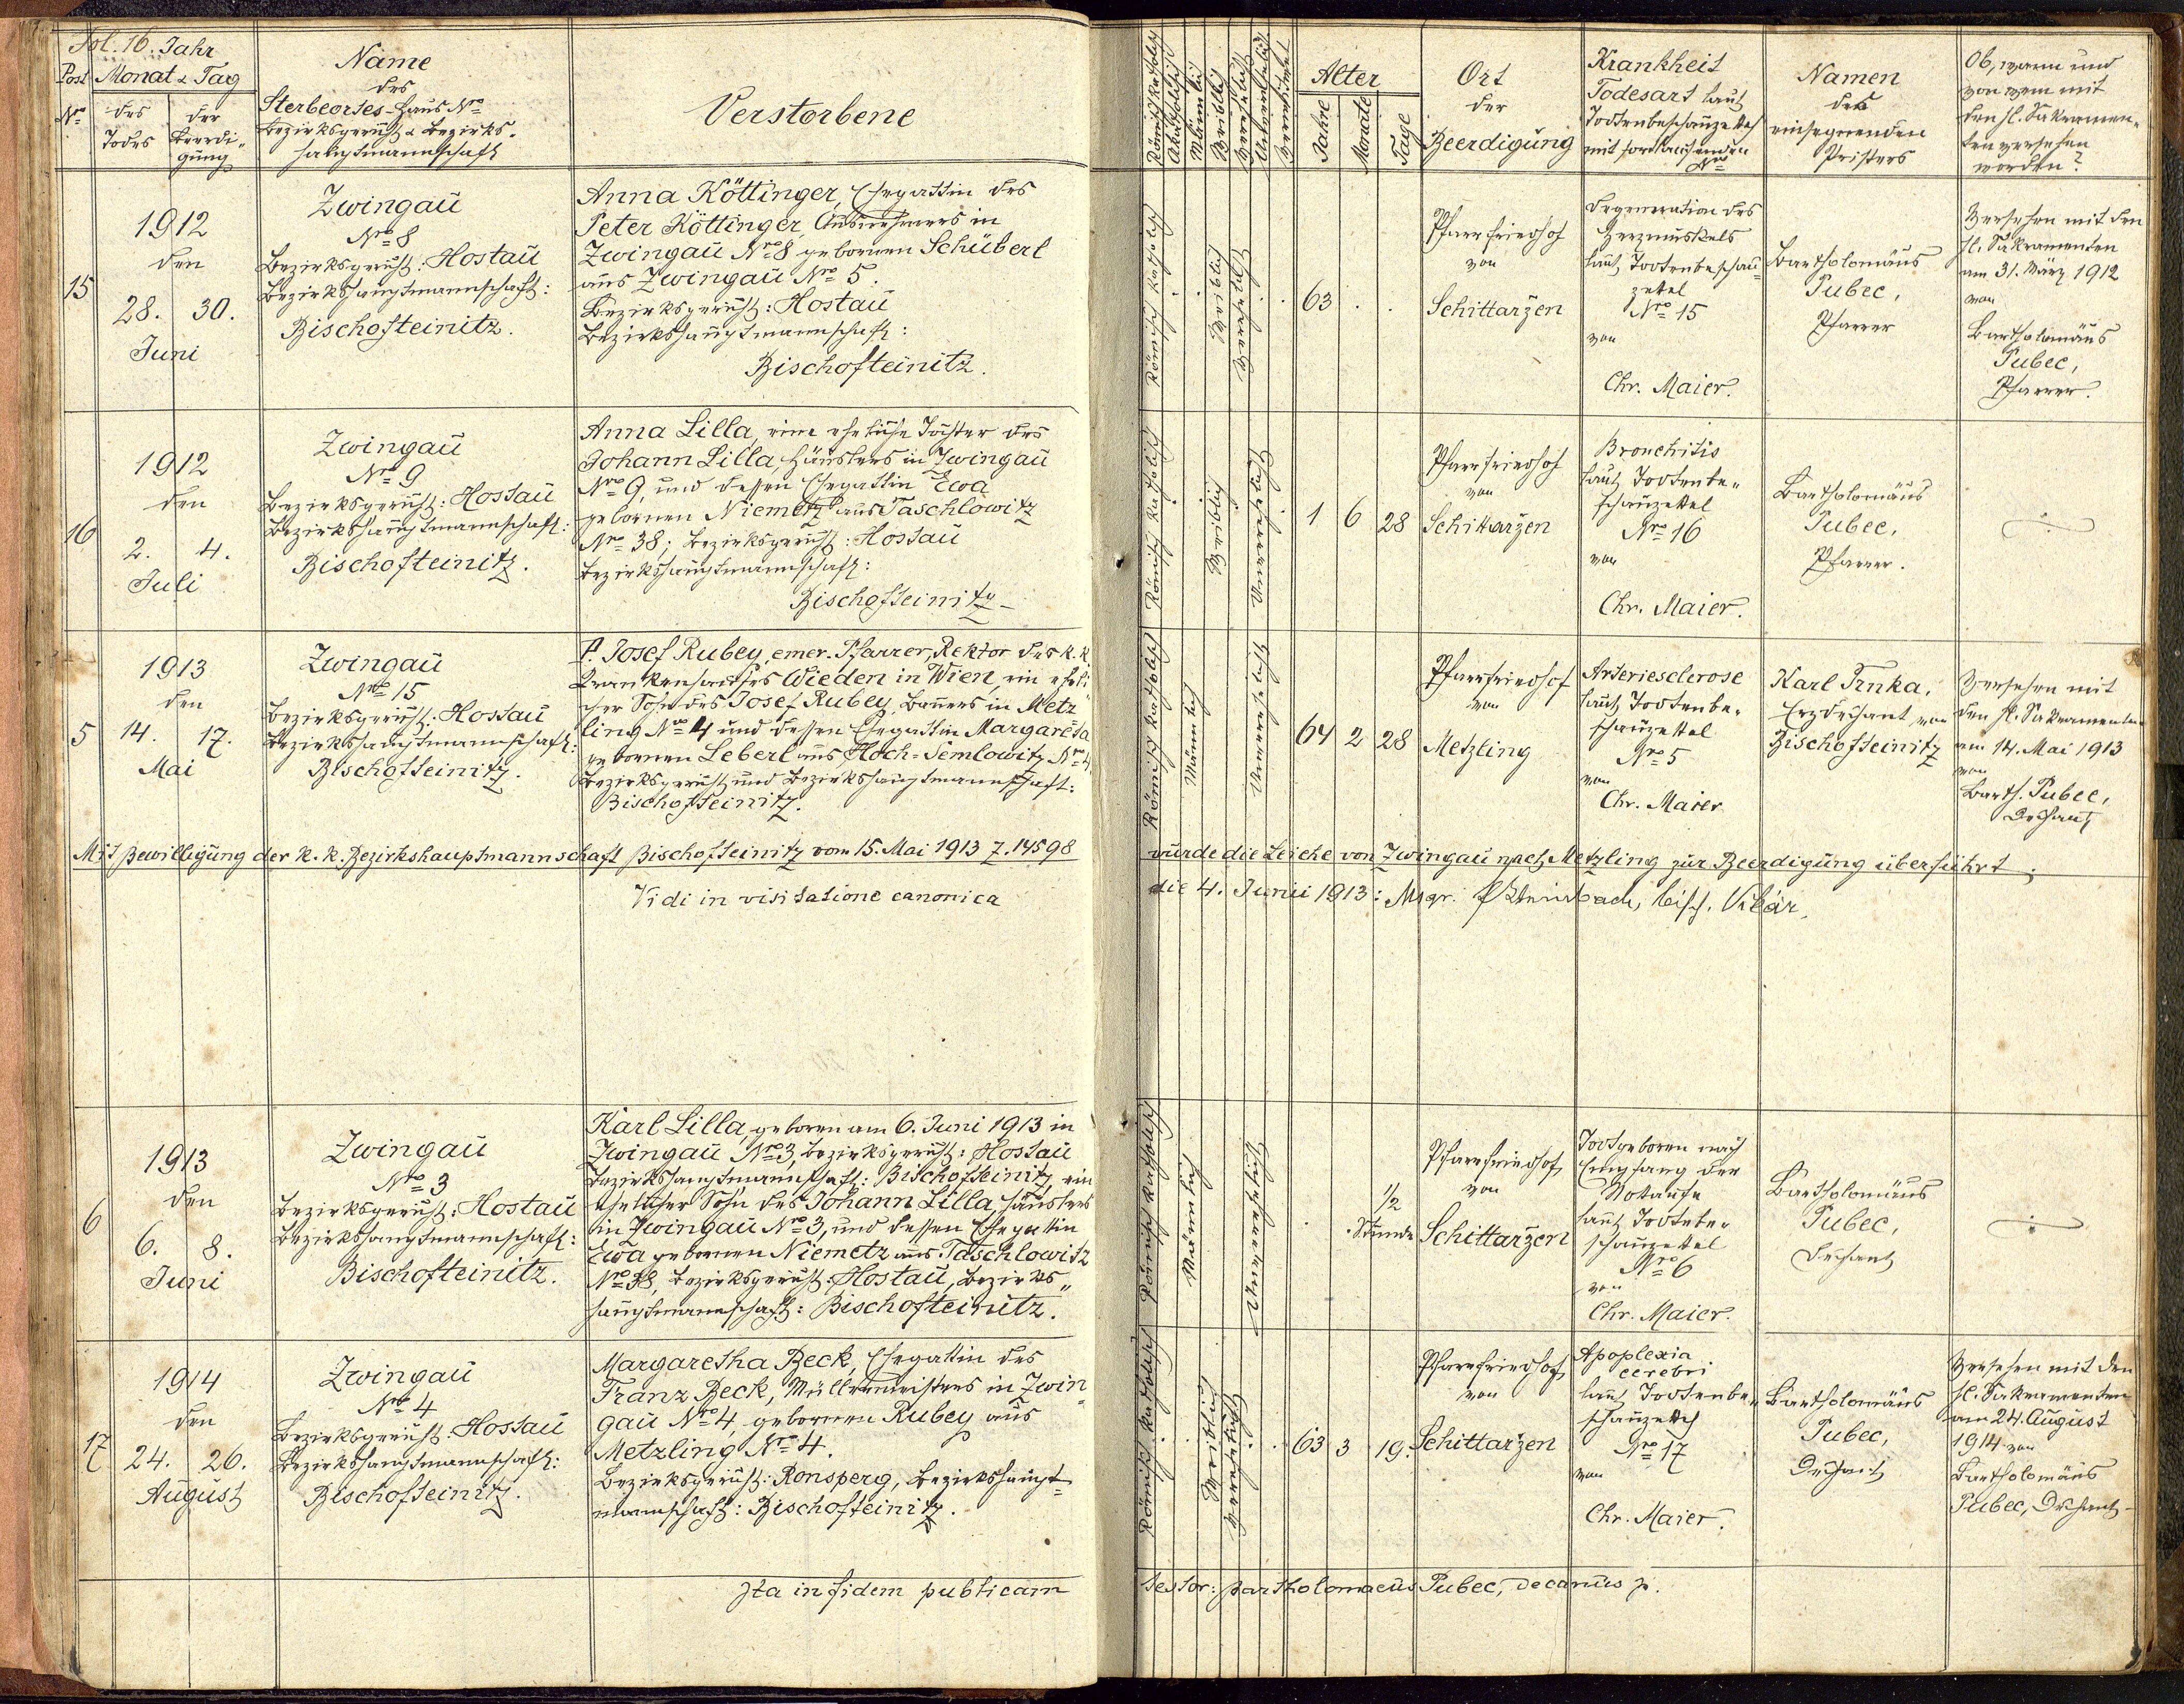 Fol. 16. Jahr
Post Monat & Tag
Nro
des
Todes
der
Beerdi-
gung
Name
des
Sterbeortes-Haus-Nro
Bezirksgericht & Bezirks-
hauptmannschaft
Verstorbene
Römischkatholisch
Akatholisch
Männlich
Weiblich
Verehelicht
Unverehelicht
Verwitwet
Alter
Jahre
Monate
Tage
Ort
der
Beerdigung
Krankheit
Todesart laut
Todtenbeschauzettel
mit fortlaufenden
Nro
Namen
des
einsegnenden
Pristers
Ob, wann und
von wem mit
den hl. Sakramen-
ten versehen
worden?
15
1912
den
28. 30.
Juni
Zwingaŭ
Nro 8
Bezirksgericht: Hostaŭ
Bezirkshauptmannschaft:
Bischofteinitz.
Anna Köttinger, Ehegattin des
Peter Köttinger, Ausnehmers in
Zwingaŭ Nro 8 gebornen Schŭberl
aus Zwingaŭ Nro 5.
Bezirksgericht: Hostaŭ
Bezirkshauptmannschaft:
Bischofteinitz.
Römisch katholisch
Weiblich
Verehelicht
63 . .
Pfarrfriedhof
von
Schittarzen
Degeneration des
Herzmuskels
laut Todtenbeschau-
zettel
Nro 15
von
Chr. Maier.
Bartholomäus
Pubec,
Pfarrer
Versehen mit den
hl. Sakramenten
am 31. März 1912
von
Bartholomäus
Pubec,
Pfarrer.
16
1912
den
2. 4.
Juli
Zwingaŭ
Nro 9
Bezirksgericht: Hostaŭ
Bezirkshauptmannschaft:
Bischofteinitz.
Anna Lilla, eine eheliche Tochter des
Johann Lilla, Häuslers in Zwingaŭ
Nro 9, und dessen Ehegattin Ewa
gebornen Niemetz aus Taschlowitz
Nro 38; Bezirksgericht: Hostaŭ
Bezirkshauptmannschaft:
Bischofteinitz
Römisch katholisch
Weiblich
Unverehelicht
1 6 28
Pfarrfriedhof
von
Schittarzen
Bronchitis
laut Todtenbe-
schauzettel
Nro 16
von
Chr. Maier.
Bartholomäus
Pubec,
Pfarrer.
5
1913
den
14. 17.
Mai
Zwingaŭ
Nro 15
Bezirksgericht: Hostaŭ
Bezirkshauptmannschaft:
Bischofteinitz.
P. Josef Rubey, emer. Pfarrer, Rektor des k.k.
Krankenhauses Wieden in Wien, ein eheli-
cher Sohn des Josef Rubey, Bauers in Metz-
ling Nro 4 und dessen Ehegattin Margaretha
gebornen Leberl aus Hoch-Semlowitz Nro 4,
Bezirksgericht und Bezirkshauptmannschaft:
Bischofteinitz.
Römisch katholisch
Männlich
Unverehelicht
64 2 28
Pfarrfriedhof
von
Metzling
Arteriesclerose
laut Todtenbe-
schauzettel
Nro 5
von
Chr. Maier
Karl Trnka,
Erzdechant von
Bischofteinitz
Versehen mit
den hl. Sakramenten
am 14. Mai 1913
von
Barth. Pubec,
Dechant
Mit Bewilligŭng der k. k. Bezirkshauptmannschaft Bischofteinitz vom 15. Mai 1913 Z. 14598 wurde die Leiche von Zwingaŭ nach Metzling zur Beerdigŭng überführt.
Vidi in visitatione canonica die 4. Junii 1913: Msgr. bisch. Vikär.
6
1913
den
6. 8.
Juni
Zwingaŭ
Nro 3
Bezirksgericht: Hostaŭ
Bezirkshauptmannschaft:
Bischofteinitz.
Karl Lilla, geboren am 6. Juni 1913 in
Zwingaŭ Nro 3, Bezirksgericht: Hostaŭ
Bezirkshauptmannschaft: Bischofteinitz, ein
ehelicher Sohn des Johann Lilla, Häuslers
in Zwingaŭ Nro 3, und dessen Ehegattin
Ewa gebornen Niemetz aus Taschlowitz
Nro 38, Bezirksgericht: Hostaŭ, Bezirks-
hauptmannschaft: Bischofteinitz.
Römisch katholisch
Männlich
Unverehelicht
1/2
Stunde
Pfarrfriedhof
von
Schittarzen
Todtgeboren nach
Empfang der
Notaufe
laut Todtenbe-
schauzettel
Nro 6
von
Chr. Maier.
Bartholomäus
Pubec,
Dechant
17
1914
den
24. 26.
August
Zwingaŭ
Nro 4
Bezirksgericht: Hostaŭ
Bezirkshauptmannschaft:
Bischofteinitz.
Margaretha Beck, Ehegattin des
Franz Beck, Müllermeisters in Zwin-
gaŭ Nro 4, gebornen Rubey aus
Metzling Nro 4.
Bezirksgericht: Ronsperg, Bezirkshaupt-
mannschaft: Bischofteinitz.
Römisch katholisch
Weiblich
Verehelicht
63 3 19.
Pfarrfriedhof
von
Schittarzen
Apoplexia
cerebri
laut Todtenbe-
schauzettel
Nro 17
von
Chr. Maier.
Bartholomäus
Pubec,
Dechant
Versehen mit den
hl. Sakramenten
am 24. August
1914 von
Bartholomäus
Pubec, Dechant
Ita in fidem publicam testor: Bartholomaeus Pubec, decanus